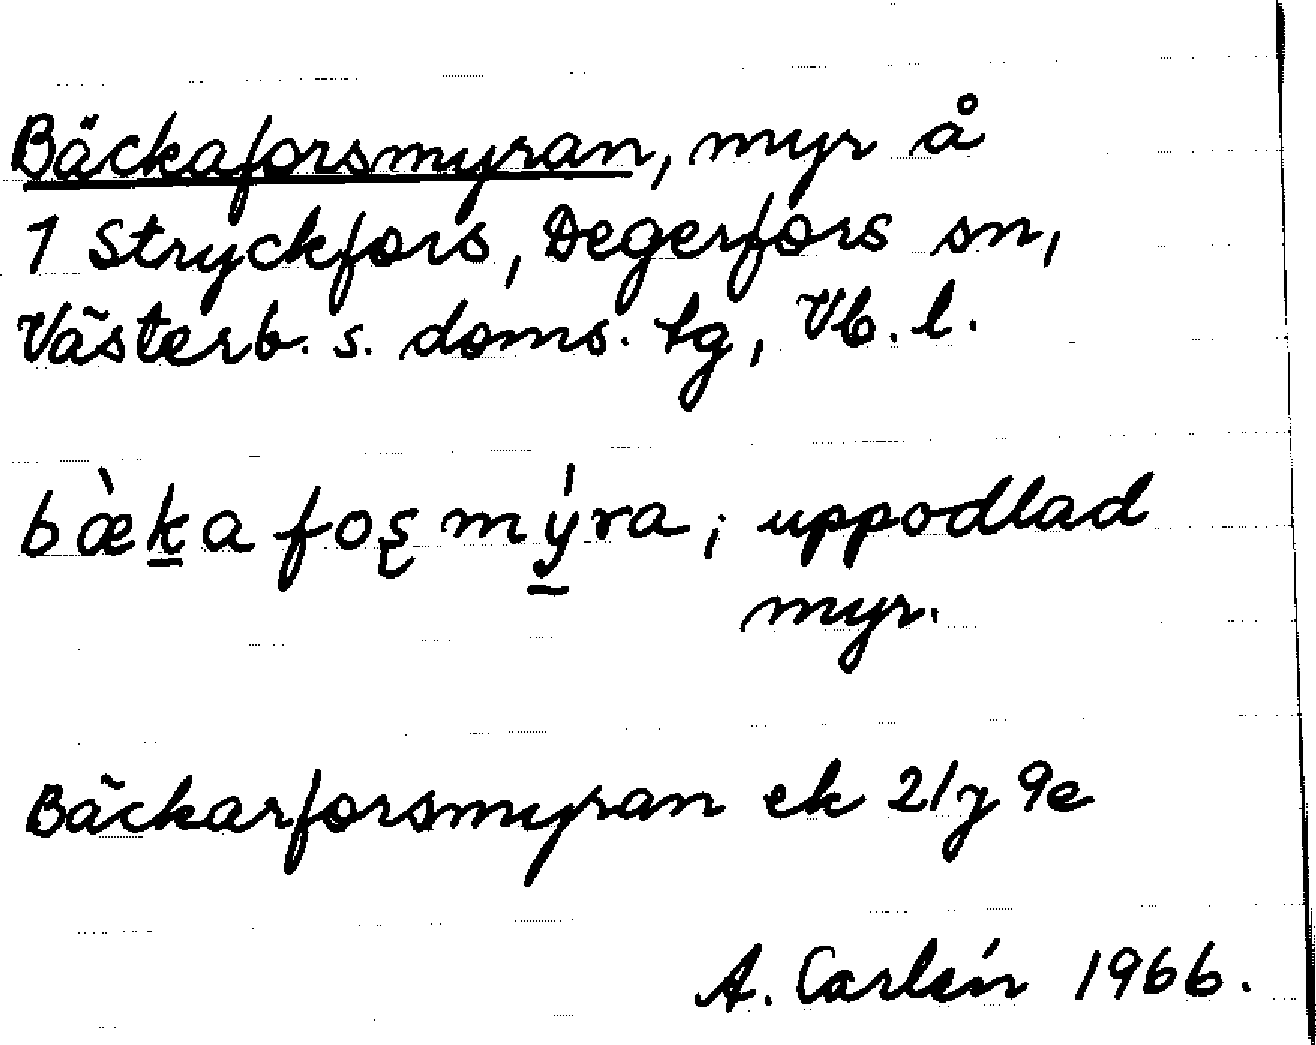 Bäckaforsmyran, myr å
1 Stryckfors, Degerfors sn,
Västerb. s. doms. tg, Vb. l.
bæ̀k̲a foʂmý̲ra; uppodlad
myr.
Bäckarforsmyran ek 21j 9e
A. Carlén 1966.